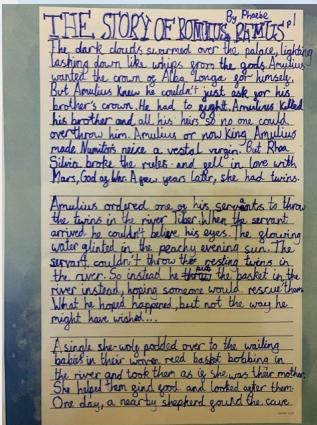 THE STORY OF ROMULUS, REMUS By Phoebe p1
The dark clouds swarmed over the palace, lighting
lashing down like whips from the gods. Amulius
wanted the crown of Alba Longa for himself.
But Amulius knew he couldn't just ask for his
brother's crown. He had to fight. Amulius killed
his brother and all his heirs so no one could
overthrow him. Amulius or now King Amulius
made Numitors neice a vestal virgin. But Rhea
Silvia broke the rules and fell in love with
Mars, God of War. A few years later, she had twins.
Amulius ordered one of his servants to throw
the twins in the river Tiber. When the servant
arrived he couldn't believe his eyes. The glowing
water glinted in the peachy evening sun. The
servant couldn't throw the resting twins in
the river. So instead he put the basket in the
river instead, hoping someone would rescue them.
What he hoped happened, but not the way he
might have wished...
A single she-wolf padded over to the wailing
babies in their woven reed basket bobbing in
the river and took them as if she was their mother.
She helped them find food and looked after them.
One day, a nearby shepherd found the cave